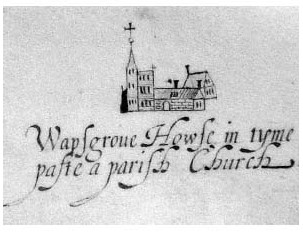 Wapsgroue Howse in tyme
paste a parish Church